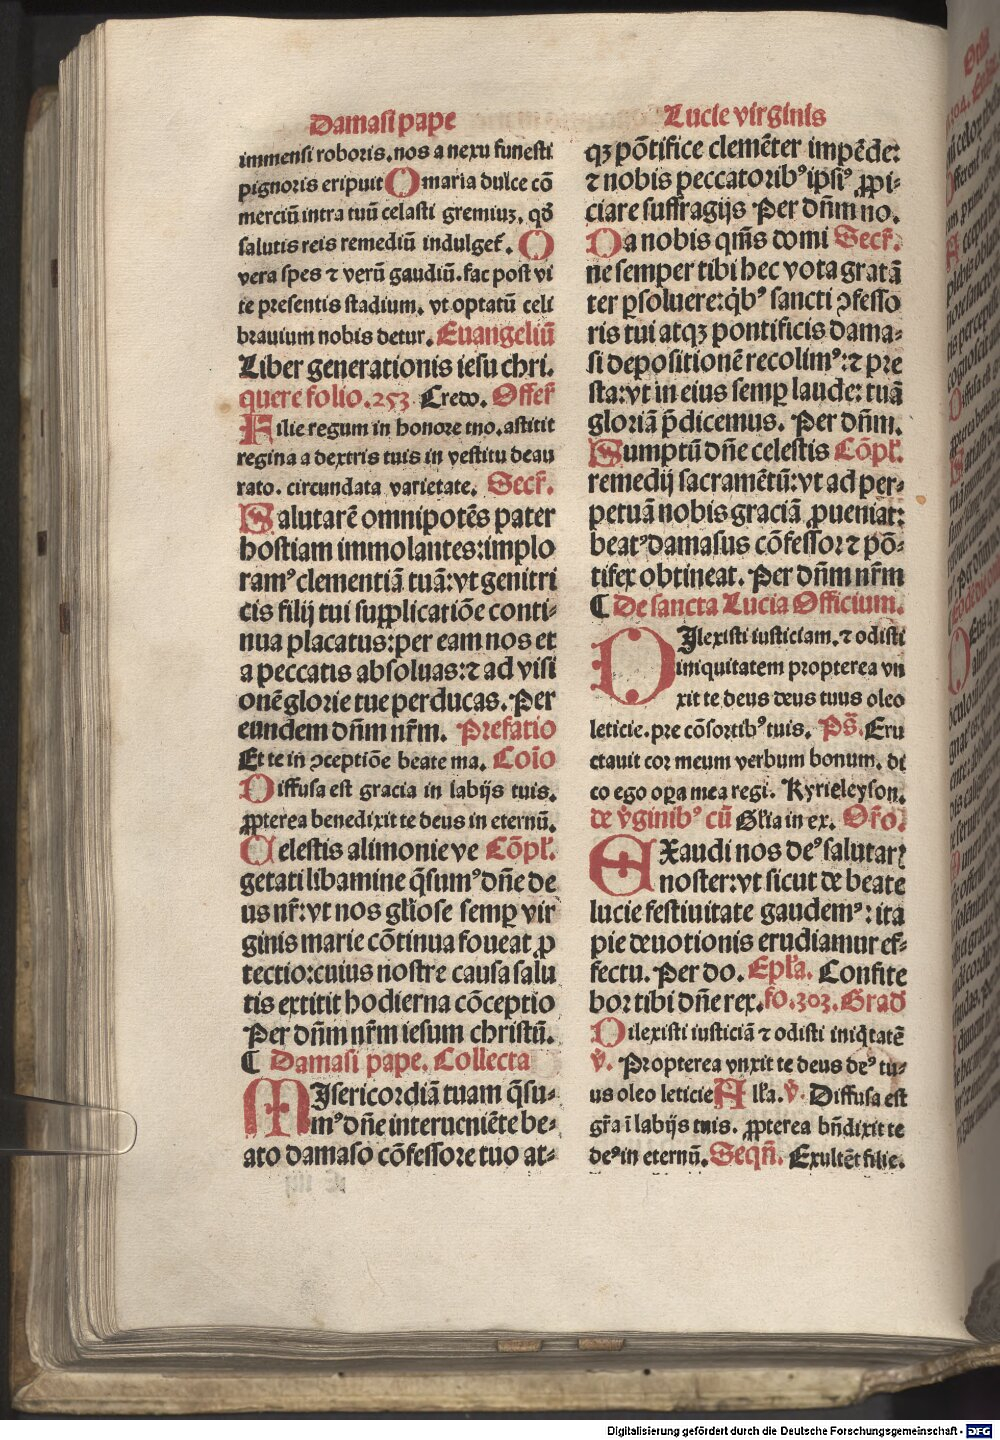 Damasi pape
immensi roboris. nos a nexu funesti
pignoris eripuit O maria dulce cō
merciū intra tuū celasti gremiuȝ. qđ
salutis reis remediū indulget᷑. O
vera spes ⁊ verū gaudiū. fac post vi
te presentis stadium. vt optatū celi
brauium nobis detur. Euangeliū
Liber generationis iesu chri.
quere folio. 253 Credo. Offer̄
Filie regum in honore tuo. astitit
regina a dextris tuis in vestitu deau
rato. circundata varietate. Secr̄.
Salutarē omnipotēs pater
hostiam immolantes: implo
ramꝰ clementiā tuā: vt genitri
cis filij tui supplicatiōe conti-
nua placatus: per eam nos et
a peccatis absoluas: ⁊ ad visi
onē glorie tue perducas. Per
eundem dn̄m nr̄m. Prefatio
Et te in ↄceptiōe beate ma. Cōio
Diffusa est gracia in labijs tuis.
ꝓpterea benedixit te deus in eternū.
Celestis alimonie ve Cōpl̄.
getati libamine q̄sumꝰ dn̄e de
us nr̄: vt nos gl̄iose semꝑ vir
ginis marie cōtinua foueat ꝓ
tectio: cuius nostre causa salu
tis extitit hodierna cōceptio
Per dn̄m nr̄m iesum christū.
¶ Damasi pape. Collecta
MIsericordiā tuam q̄su-
mꝰ dn̄e interueniēte be-
ato damaso cōfessore tuo at-
Lucie virginis
qȝ pōtifice clemēter impēde:
⁊ nobis peccatoribꝰ ipsiꝰ ꝓpi-
ciare suffragijs Per dn̄m no.
Da nobis qm̄s domi Secr̄.
ne semper tibi hec vota gratā
ter ꝑsoluere: q̇bꝰ sancti ↄfesso
ris tui atqȝ pontificis dama-
si depositionē recolimꝰ: ⁊ pre
sta: vt in eius semꝑ laude: tuā
gloriā p̄dicemus. Per dn̄m.
Sumptū dn̄e celestis Cōpl̄.
remedij sacramētū: vt ad per-
petuā nobis graciā ꝓueniat:
beatꝰ damasus cōfessor ⁊ pō-
tifex obtineat. Per dn̄m nr̄m
¶ De sancta Lucia Officium.
DIlexisti iusticiam. ⁊ odisti
iniquitatem propterea vn
xit te deus deus tuus oleo
leticie. pre cōsortibꝰ tuis. Ps̄. Eru
ctauit cor meum verbum bonum. di
co ego oꝑa mea regi. Kyrieleyson.
de v̄ginibꝰ cū Gl̄ia in ex. Or̄o.
EXaudi nos deꝰ salutarꝭ
noster: vt sicut de beate
lucie festiuitate gaudemꝰ: ita
pie deuotionis erudiamur ef-
fectu. Per do. Epl̄a. Confite
bor tibi dn̄e rex. fo. 303. Grad̄
Dilexisti iusticiā ⁊ odisti iniq̇tatē
v̄. Propterea vnxit te deus deꝰ tu-
us oleo leticie All̄a. v̄. Diffusa est
gr̄a ī labijs tuis. ꝓpterea bn̄dixit te
deꝰ in eternū. Seqn̄. Exultēt filie.
Digitalisierung gefördert durch die Deutsche Forschungsgemeinschaft - DFG